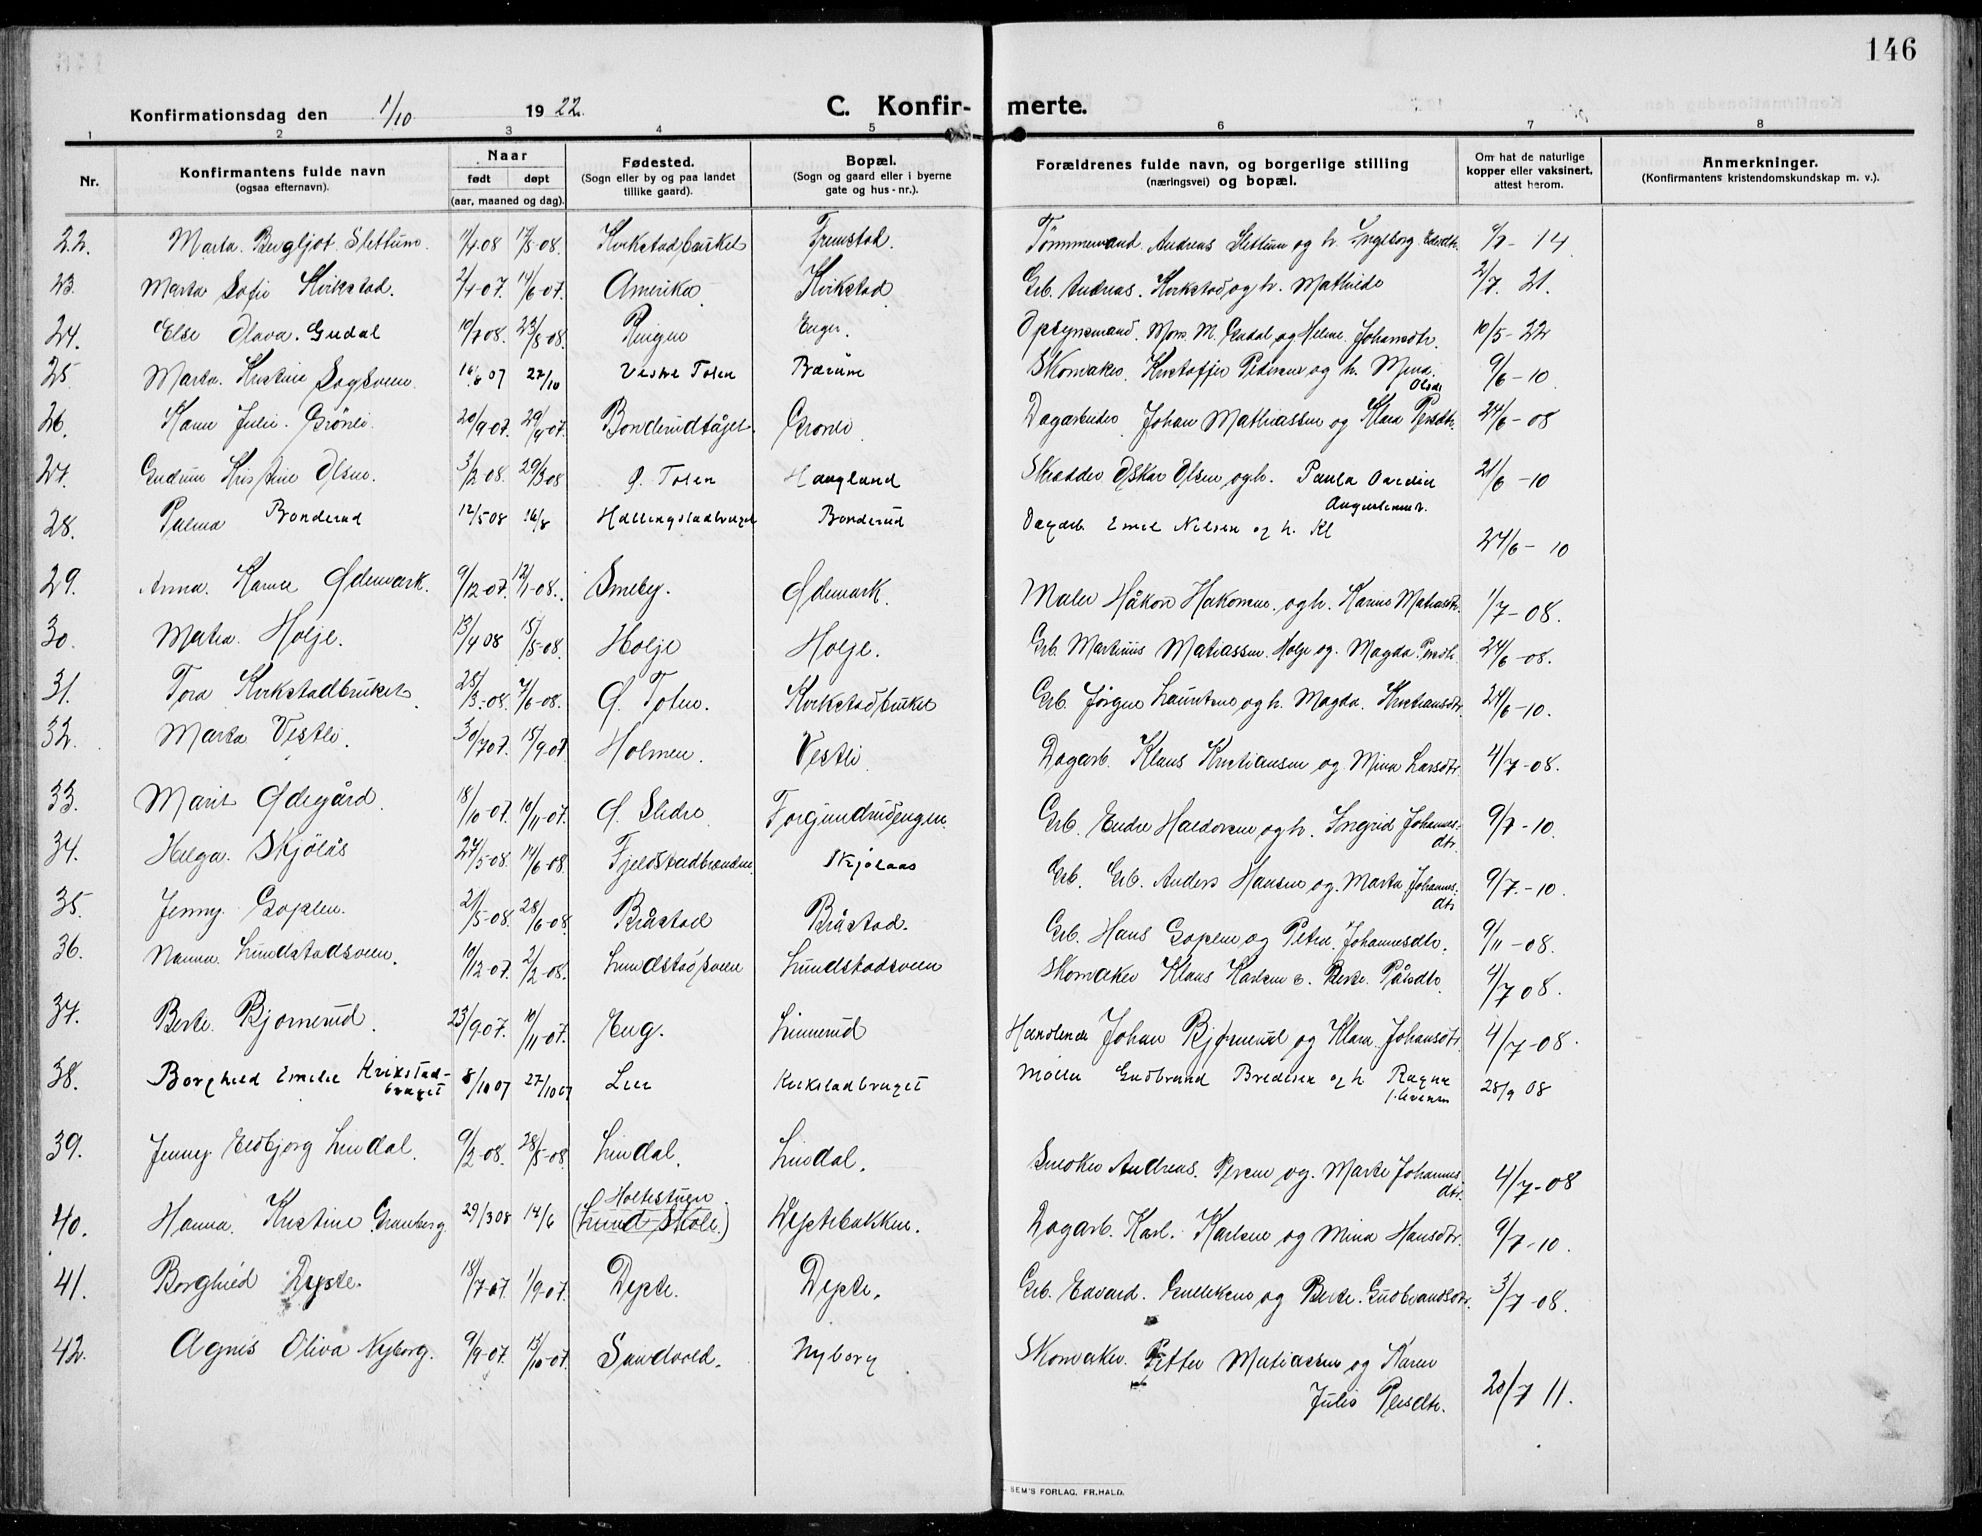 146
Konfirmationsdag den 1/10 1922. C. Konfir- merte.
1 2 3 4 5 6 7 8
Nr. Konfirmantens fulde navn (ogsaa efternavn). Naar født døpt (aar, maaned og dag). Fødested. (Sogn eller by og paa landet tillike gaard). Bopæl. (Sogn og gaard eller i byerne gate og hus-nr.). Forældrenes fulde navn, og borgerlige stilling (næringsvei) og bopæl. Om hat de naturlige kopper eller vaksinert, attest herom. Anmerkninger. (Konfirmantens kristendomskundskap m. v.).
22. Marta Bergljot Slettum. 1/4 08 17/5-08. Kvikstadbruket Fremstad. Tømmermand Andreas Slettum og h. Ingeborg 14
23. Marta Sofie Kvikstad. 2/4-07. 14/6-07. Amerika Kvikstad Grb. Andreas Kvikstad og h. Mathilde 2/7. 21.
24. Else Olava Gudal 10/7 08. 23/8-08. Ringen Enger. Opsynsmand. Mons M. Gudal og Helene Johansdtr. 10/5-22
25 Marta Kristine Sogsveen. 16/8 07 27/10 Vestre Toten Bærum Skomaker. Kristoffer Pedersen og h. Mina Olsdtr 9/6-10
26. Karen Julie Grønli. 20/9 07. 29/9 07. Bonderudtåjet Grønli Dagarbeider Johan Mathiassen og Klara Persdtr. 24/6-08
27. Gudrun Kristine Olsen. 3/2 08. 29/3 08 Ø. Toten Haugland Skrædder Oskar Olsen og h. Paula 21/6-10
28. Palma Bonderud 12/5 08 16/8 Hallingstadbruget Bonderud Dagarb Emil Nilsen og h. Kl 24/6-10
29. Anna Karine Ødemark. 9/12-07. 12/1-08. Smeby. Ødemark. Maler Håkon Hakonsen og h. Karine Matiasdtr. 1/7-08.
30. Marta Holje. 13/4 08 15/5-08. Holje Holje. Grb. Martinius Matiassen Holje og Magda Persdtr. 24/6-08.
31. Tora Kvikstadbruket. 28/3-08. 7/6-08. Ø. Toten. Kvikstadbruket Grb. Jørgen Lauritsens og h. Magda Kristiansdtr. 24/6-10.
32. Marta Vestli. 30/7 07. 15/9-07 Holmen. Vestli Dagarb. Klaus Kristiansen og Mina Larsdtr. 4/7-08.
33. Marit Ødegård. 18/10-07. 10/11-07. Ø. Slidre Forgundrudengen. Grb. Endre Haldorsen og h. Ingrid Johannesdtr. 9/7-10.
34. Helga Skjölås 24/5-08. 14/6-08. Fjeldstadbrænden Skjølaas Grb. Grb. Anders Hansen og Marta Johannesdtr 9/7.-10.
35. Jenny Goplen. 21/5-08. 28/6-08. Bråstad Bråstad. Grb. Hans Goplen og Petra Johannesdtr. 9/11-08.
36. Nanna Lundstadsveen. 10/12-07. 2/2-08. Lundstadsveen Lundstadsveen Skomaker Klaus Karlsen o. Berte Pålsdtr. 4/7 08.
37. Berte Bjørnerud. 23/9-07. 10/11-07. Eng. Linnerud Handlende Johan Bjørnerud og Klara Johansdtr. 4/7-08.
38. Borghild Emelie Kvikstad-bruget 8/10 07 27/10 07 Lier Kvikstadbruget Møller Gudbrand Bredesen og h Ragna 28/9 08
39. Jenny Eldbjørg Lindal. 9/2-08. 28/5-08 Lindal. Lindal. Andreas Persen og Marte Johannesdtr. 4/7-08
40. Hanna Kristine Granberg. 29/3 08 14/6 Holtestuen (Lund Skole.) Dystebakken. Dagarb. Karl Karlsen og Mina Hansdtr. 9/7-10.
41. Borghild Dyste. 18/7-07. 1/9-07. Dyste. Dyste. Grb. Edvard Gulliksen og Berte Gudbrandsdtr. 3/7-08.
42. Agnes Oliva Nyborg. 9/9-07. 13/10-07. Sandvold. Nyborg Skomaker. Petter Matiassen og Karen
Julie Persdtr. 20/7 11.
SEM'S FORLAG, FR.HALD.